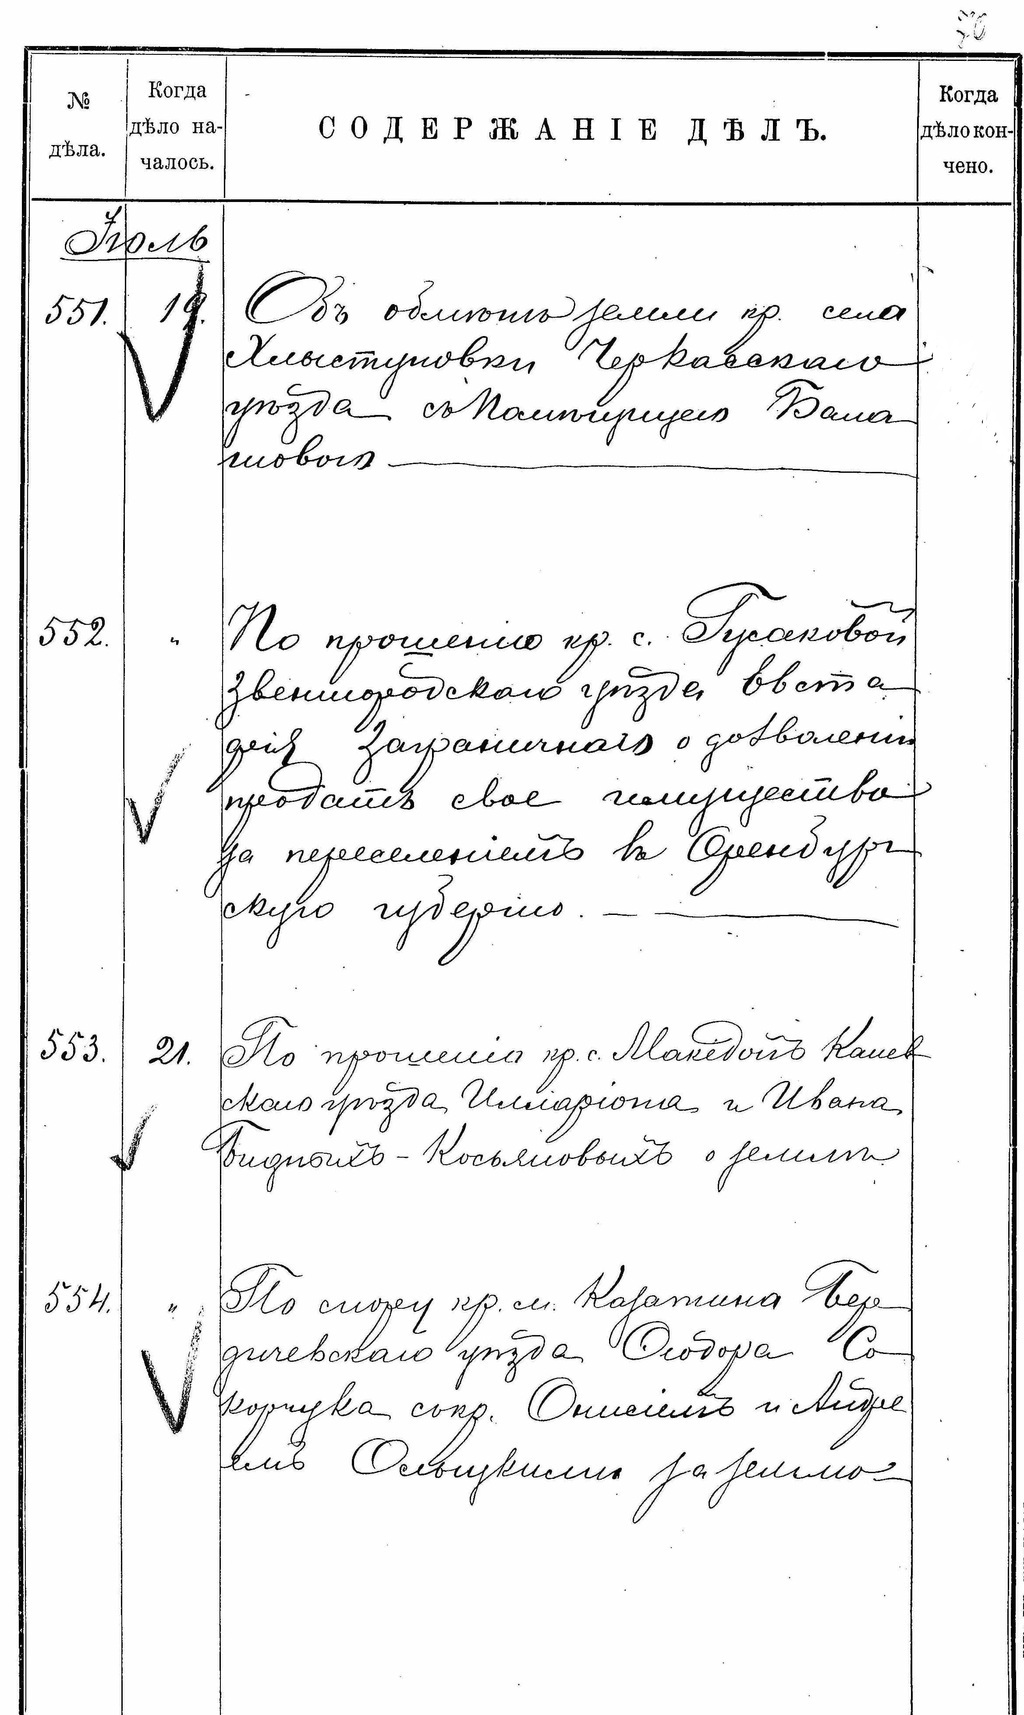 № дѣла.
Когда дѣло началось.
СОДЕРЖАНІЕ ДѢЛЪ.
Когда дѣло кончено.
Іюль
551. 19. Объ обмѣнѣ земли кр. села
Хлыстуновки Черкасскаго
уѣзда съ Помѣщицею Бала
шовою
552. " По прошенію кр. с. Гусаковой
Звенигородскаго уѣзда Евста
фія Заграничнаго о дозволеніи
продать свое имущество
за переселеніемъ въ Оренбург
скую губернію.
553. 21. По прошенію кр. с. Македонъ Канев
скаго уѣзда Илларіона и Ивана
Бидныхъ-Косьяновыхъ о землѣ
554. " По спору кр. м. Казатина Бер
дичевскаго уѣзда Ѳеодора Со
корчука съ кр. Онисіемъ и Андре
емъ за землю